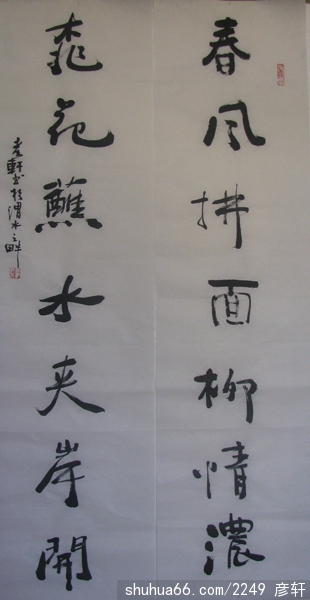 春风拂面柳情濃
桃花蘸水夹岸開
彦軒书於渭水之畔
shuhua66.com/2249 彦轩